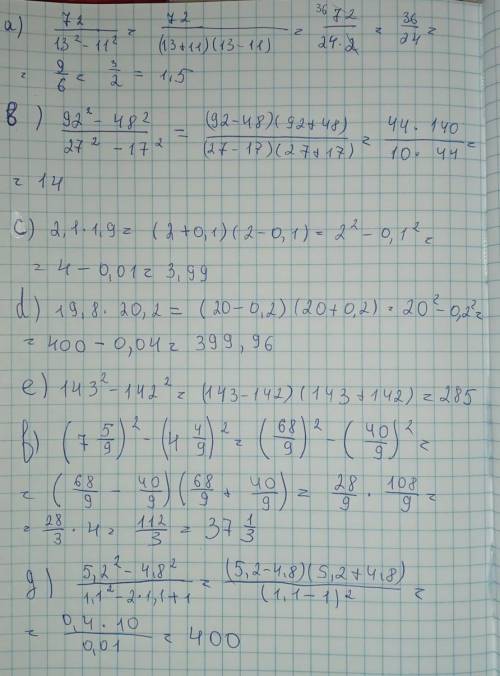 a) 72/(13² - 11²) = 72/((13+11)(13-11)) = ³⁶72/(24·2) = 36/24 =
= 9/6 = 3/2 = 1,5
b) (92² - 48²)/(27² - 17²) = ((92-48)(92+48))/((27-17)(27+17)) = (44·140)/(10·44) =
= 14
c) 2,1·1,9 = (2+0,1)(2-0,1) = 2² - 0,1² =
= 4 - 0,01 = 3,99
d) 19,8·20,2 = (20-0,2)(20+0,2) = 20² - 0,2² =
= 400 - 0,04 = 399,96
e) 143² - 142² = (143-142)(143+142) = 285
f) (7 5/9)² - (4 4/9)² = (68/9)² - (40/9)² =
= (68/9 - 40/9)(68/9 + 40/9) = 28/9 · 108/9 =
= 28/3 · 4 = 112/3 = 37 1/3
g) (5,2² - 4,8²)/(1,1² - 2·1,1+1) = ((5,2-4,8)(5,2+4,8))/(1,1-1)² =
= (0,4·10)/0,01 = 400